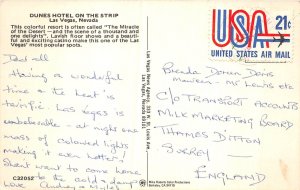 DUNES HOTEL ON THE STRIP
Las Vegas, Nevada
This colorful resort is often called "The Miracle
of the Desert - and the scene of a thousand and
one delights". Lavish floor shows and a beauti-
ful and exciting casino make this one of the Las
Vegas' most popular spots.
Dear all
Having a wonderful
time & the heat's
terrific. Las Vegas is
unbelievable - at night one
mass of coloured lights
making it even hotter!
Shant want to come home
to the cold & damp
Love
C32052
Las Vegas News Agency
Mike Roberts Color Productions
Berkeley, CA 94710
USA 21c
UNITED STATES AIR MAIL
Brenda
C/O TRANSPORT ACCOUNTS
MILK MARKETING BOARD
THAMES DITTON
SURREY
ENGLAND